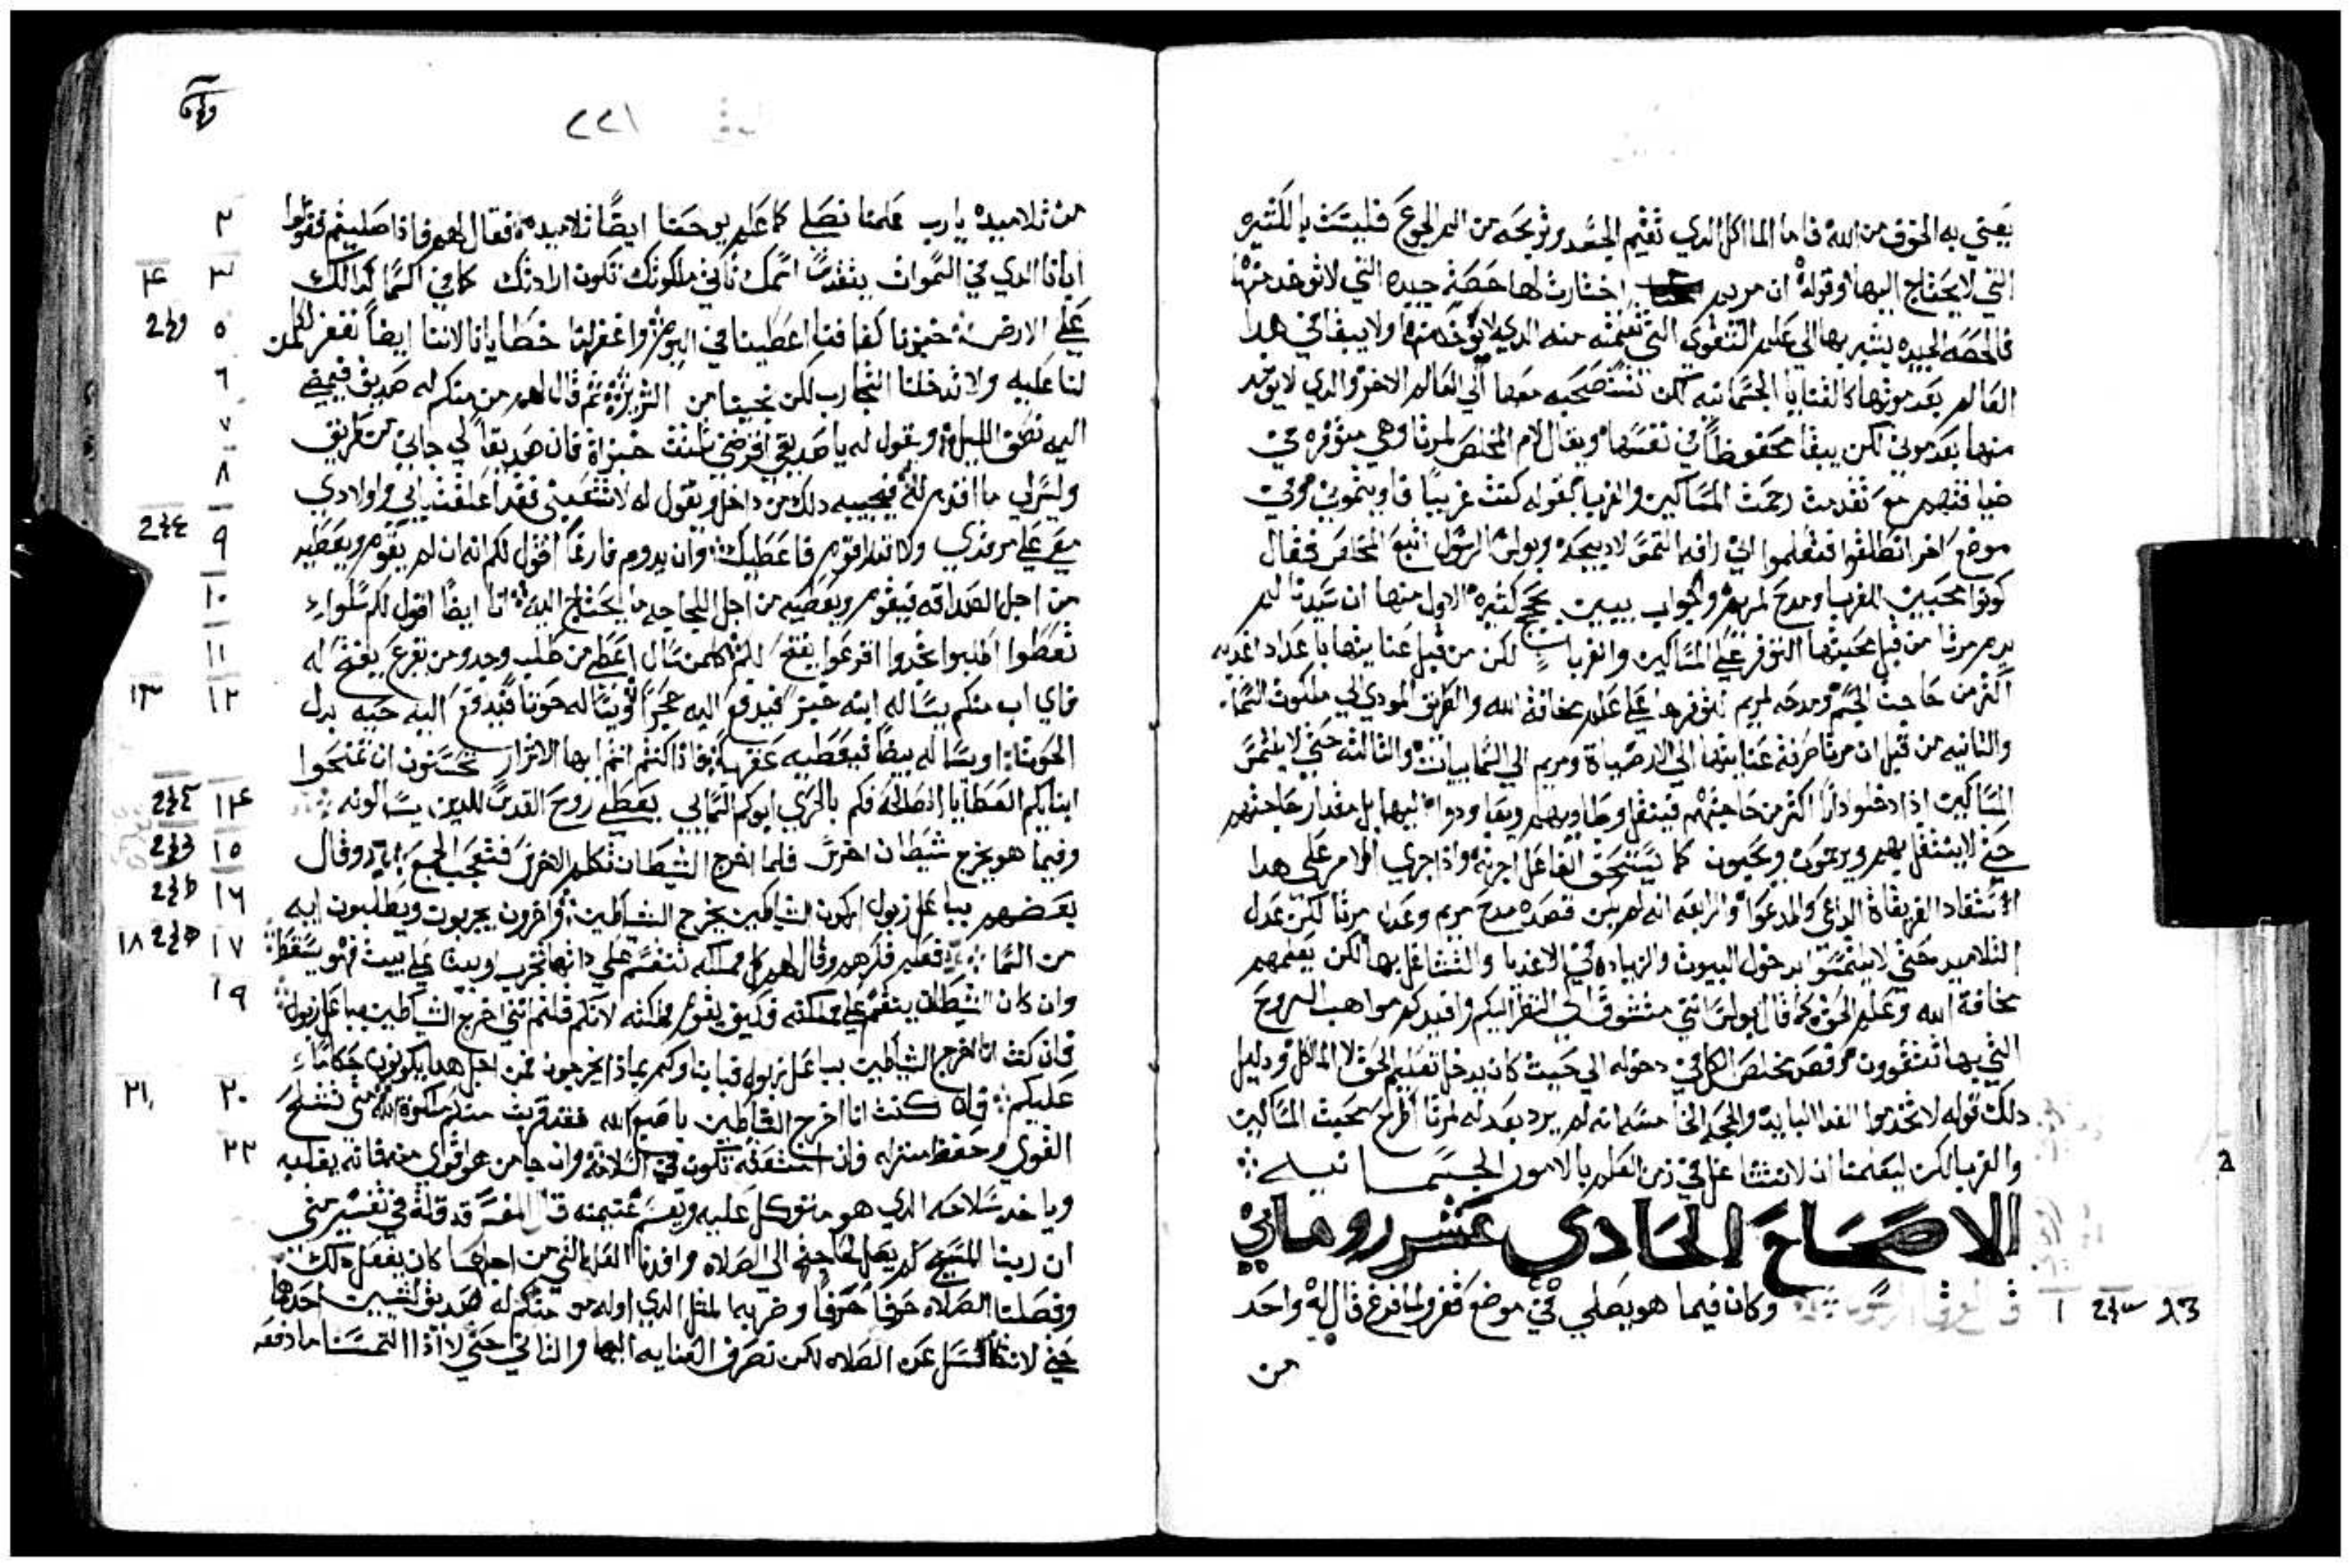 يعني به الخوف من الله فاما الماكل الدي تقيم الجسد وتريحه من الم الجوع فليست بالكتيره
التي لا يحتاج اليها وقوله ان مريم اختارت لها حصة جيده التي لا توخد منها
فالحصه الجيده يشير بها الي علم التقوي التي تعلمته منه الدي لا يوخد منها ولا يبقا في هدا
العالم بعد موتها كالقنايا الجسمانيه لكن تستصحبه معها الي العالم الاخر والدي لا يوخد
منها بعد موتي لكن يبقا محفوظاً في نفسها ويقال لام المخلص لمرتا وهي متوفره في
ضيافتهم مع تقدمت رحمت المساكين والغربا بقوله كنت غريبًا فاويتموني وفي
موضع اخر انطلقوا فتعلموا اني رافه التمس لا دبيحه وبولس الرسول اتبع المخلص فقال
كونوا محبين الغربا ومدح لمريم والجواب يبين بحجج كتيره الاول منها ان سيدنا لم
يدم مرتا من قبل محبتها التوفر علي المساكين والغربا لكن من قبل عنايتها باعداد اغديه
اكثر من حاجت الجسم ومدحه لمريم لتوفرها علي علم مخافة الله والطريق المودي الي ملكوت السما
والتانيه من قبل ان مرتا صرفة عنايتها الي الارضياة ومريم الي السماييات والتالته حتي لا يلتمس
المساكين ادا دخلو دارًا اكتر من حاجتهم فيتقل وطاوبهم ويعاودوا اليها بل مقدار حاجتهم
حتي لا يستقل بهم ويرتمون ويحبون كما يستحق الفاعل اجرته وادا جري الامر علي هدا
استفاد الفريقاة الداعي والمدعوا والرابعه انه لم يكن قصده مدح مريم وعدل مرتا لكن عدل
التلاميد حتي لا يلتمسوا بدخول البيوت والزياده في الاغديا والتشاغل بها لكن يعلمهم
مخافة الله وعلم الحق كما قال بولس انني متشوق الي النظر اليكم وافيدكم مواهب الروح
التي بها تتقوون وقصد مخلص الكل في دخوله الي حيت كان يدخل تعليم الحق لا الماكل ودليل
دلك قوله لا تخدموا الغدا البايد والحجه الخامسه انه لم يرد بعدله لمرتا اطراح محبت المساكين
والغربا لكن ليعلمنا ان لا نتشاغل في زمن العلم بالامور الجسمانيه
الاصحاح الحادي عشر روماني
١ وكان فيما هو يصلي في موضع قفر ولما فرغ قال له واحد
من
٢٢١
٢ من تلاميده يا رب علمنا نصلي كما علم يوحنا ايضًا تلاميده فقال لهم فاذا صليتم فقولوا
٣ ٤ ابانا الدي في السموات يتقدس اسمك تاتي ملكوتك تكون ارادتك كما في السما كدالك
٥ علي الارض خبزنا كفافنا اعطينا في اليوم واغفر لنا خطايانا لاننا ايضاً نغفر لكلمن
٦ لنا عليه ولا تدخلنا التجارب لكن نجينا من الشرير ثم قال لهم من منكم له صديق فيمضي
٧ اليه نصف الليل ويقول له يا صديقي اقرضني تلتت خبزاة فان صديقاً لي جاني من طريق
٨ وليس لي ما اقدم له فيجيبه دلك من داخل ويقول له لا تتعبني فقد اغلقت بابي واولادي
٩ معي علي مرقدي ولا تقدر اقوم فاعطيك وان يدوم قارعاً اقول لكم انه ان لم يقوم ويعطيه
١٠ من اجل الصداقه فيقوم ويعطيه من اجل اللجاجه ما يحتاج اليه انا ايضًا اقول لكم سلوا
١١ تعطوا اطلبوا تجدوا اقرعوا يفتح لكم كلمن سال اعطي من طلب وجد ومن يقرع يفتح له
١٢ ١٣ فاي اب منكم يساله ابنه خبز فيدفع اليه حجرًا او يساله حوتا فيدفع اليه حيه بدل
الحوت او يساله بيضًا فيعطيه عقربا فاذا كنتم انتم ايها الاشرار تحسنون ان تمنحوا
١٤ ابنايكم العطايا الصالحة فكم بالحري ابوكم السمايي يعطي روح القدس للدين يسالونه
١٥ وفيما هو يخرج شيطان اخرس فلما اخرج الشيطان تكلم الاخرس فتعجب الجمع وقال
١٦ بعضهم بباعل زبول اركون الشياطين يخرج الشياطين واخرون يجربون ويطلبون ايه
١٧ ١٨ من السما فعلم فكرهم وقال لهم كل مملكه تنقسم علي داتها تخرب وبيتا علي بيت فهو يسقط
١٩ وان كان الشيطان ينقسم علي مملكته فكيف يقوم مملكته لانكم قلتم انني اخرج الشياطين بباعل زبول
فان كنت انا اخرج الشياطين بباعل زبول فابناوكم بماذا يخرجون فمن اجل هدا يكونون حكامًا
٢٠ ٢١ عليكم فان كنت انا اخرج الشياطين باصبع الله فقد قربت منكم ملكوة الله متي تسلح
٢٢ القوي وحفظ منزله فان امتعته تكون في السلامة وان جا من هو اقوي منه فانه يغلبه
وياخد سلاحه الدي هو متوكل عليه ويقسم غنيمته قال المفسر قد قلة في تفسير متي
ان ربنا المسيح لم يصل لحاجته الي الصلاه وافدنا العله التي من اجلها كان يفعل دلك
وفصلنا الصلاه حرفا حرفا وضربه المتل الدي اوله من منكم له صديق لشيين احدهما
حتي لا نكسل عن الصلاه لكن نصرف العنايه اليها والتاني حتي لا اذا التمسنا ما دفعه